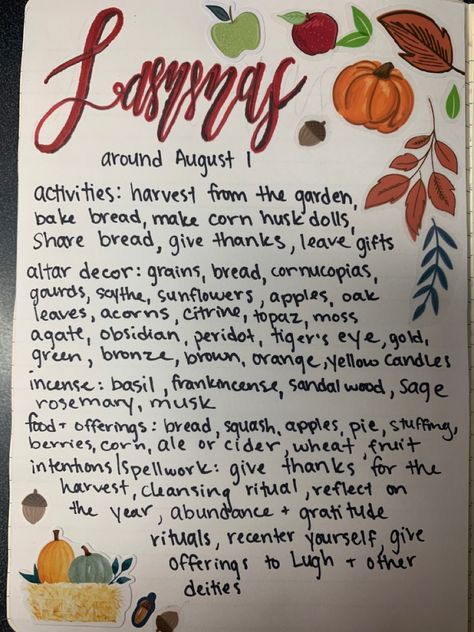 Lammas
around August 1
activities: harvest from the garden,
bake bread, make corn husk dolls,
Share bread, give thanks, leave gifts
altar decor: grains, bread, cornucopias,
gourds, scythe, sunflowers, apples, oak
leaves, acorns, citrine, topaz, moss
agate, obsidian, peridot, tiger's eye, gold,
green, bronze, brown, orange, yellow candles
incense: basil, frankincense, sandal wood, sage
rosemary, musk
food + offerings: bread, squash, apples, pie, stuffing,
berries, corn, ale or cider, wheat, fruit
intentions/spellwork: give thanks for the
harvest, cleansing ritual, reflect on
the year, abundance + gratitude
rituals, recenter yourself, give
offerings to Lugh + other
deities